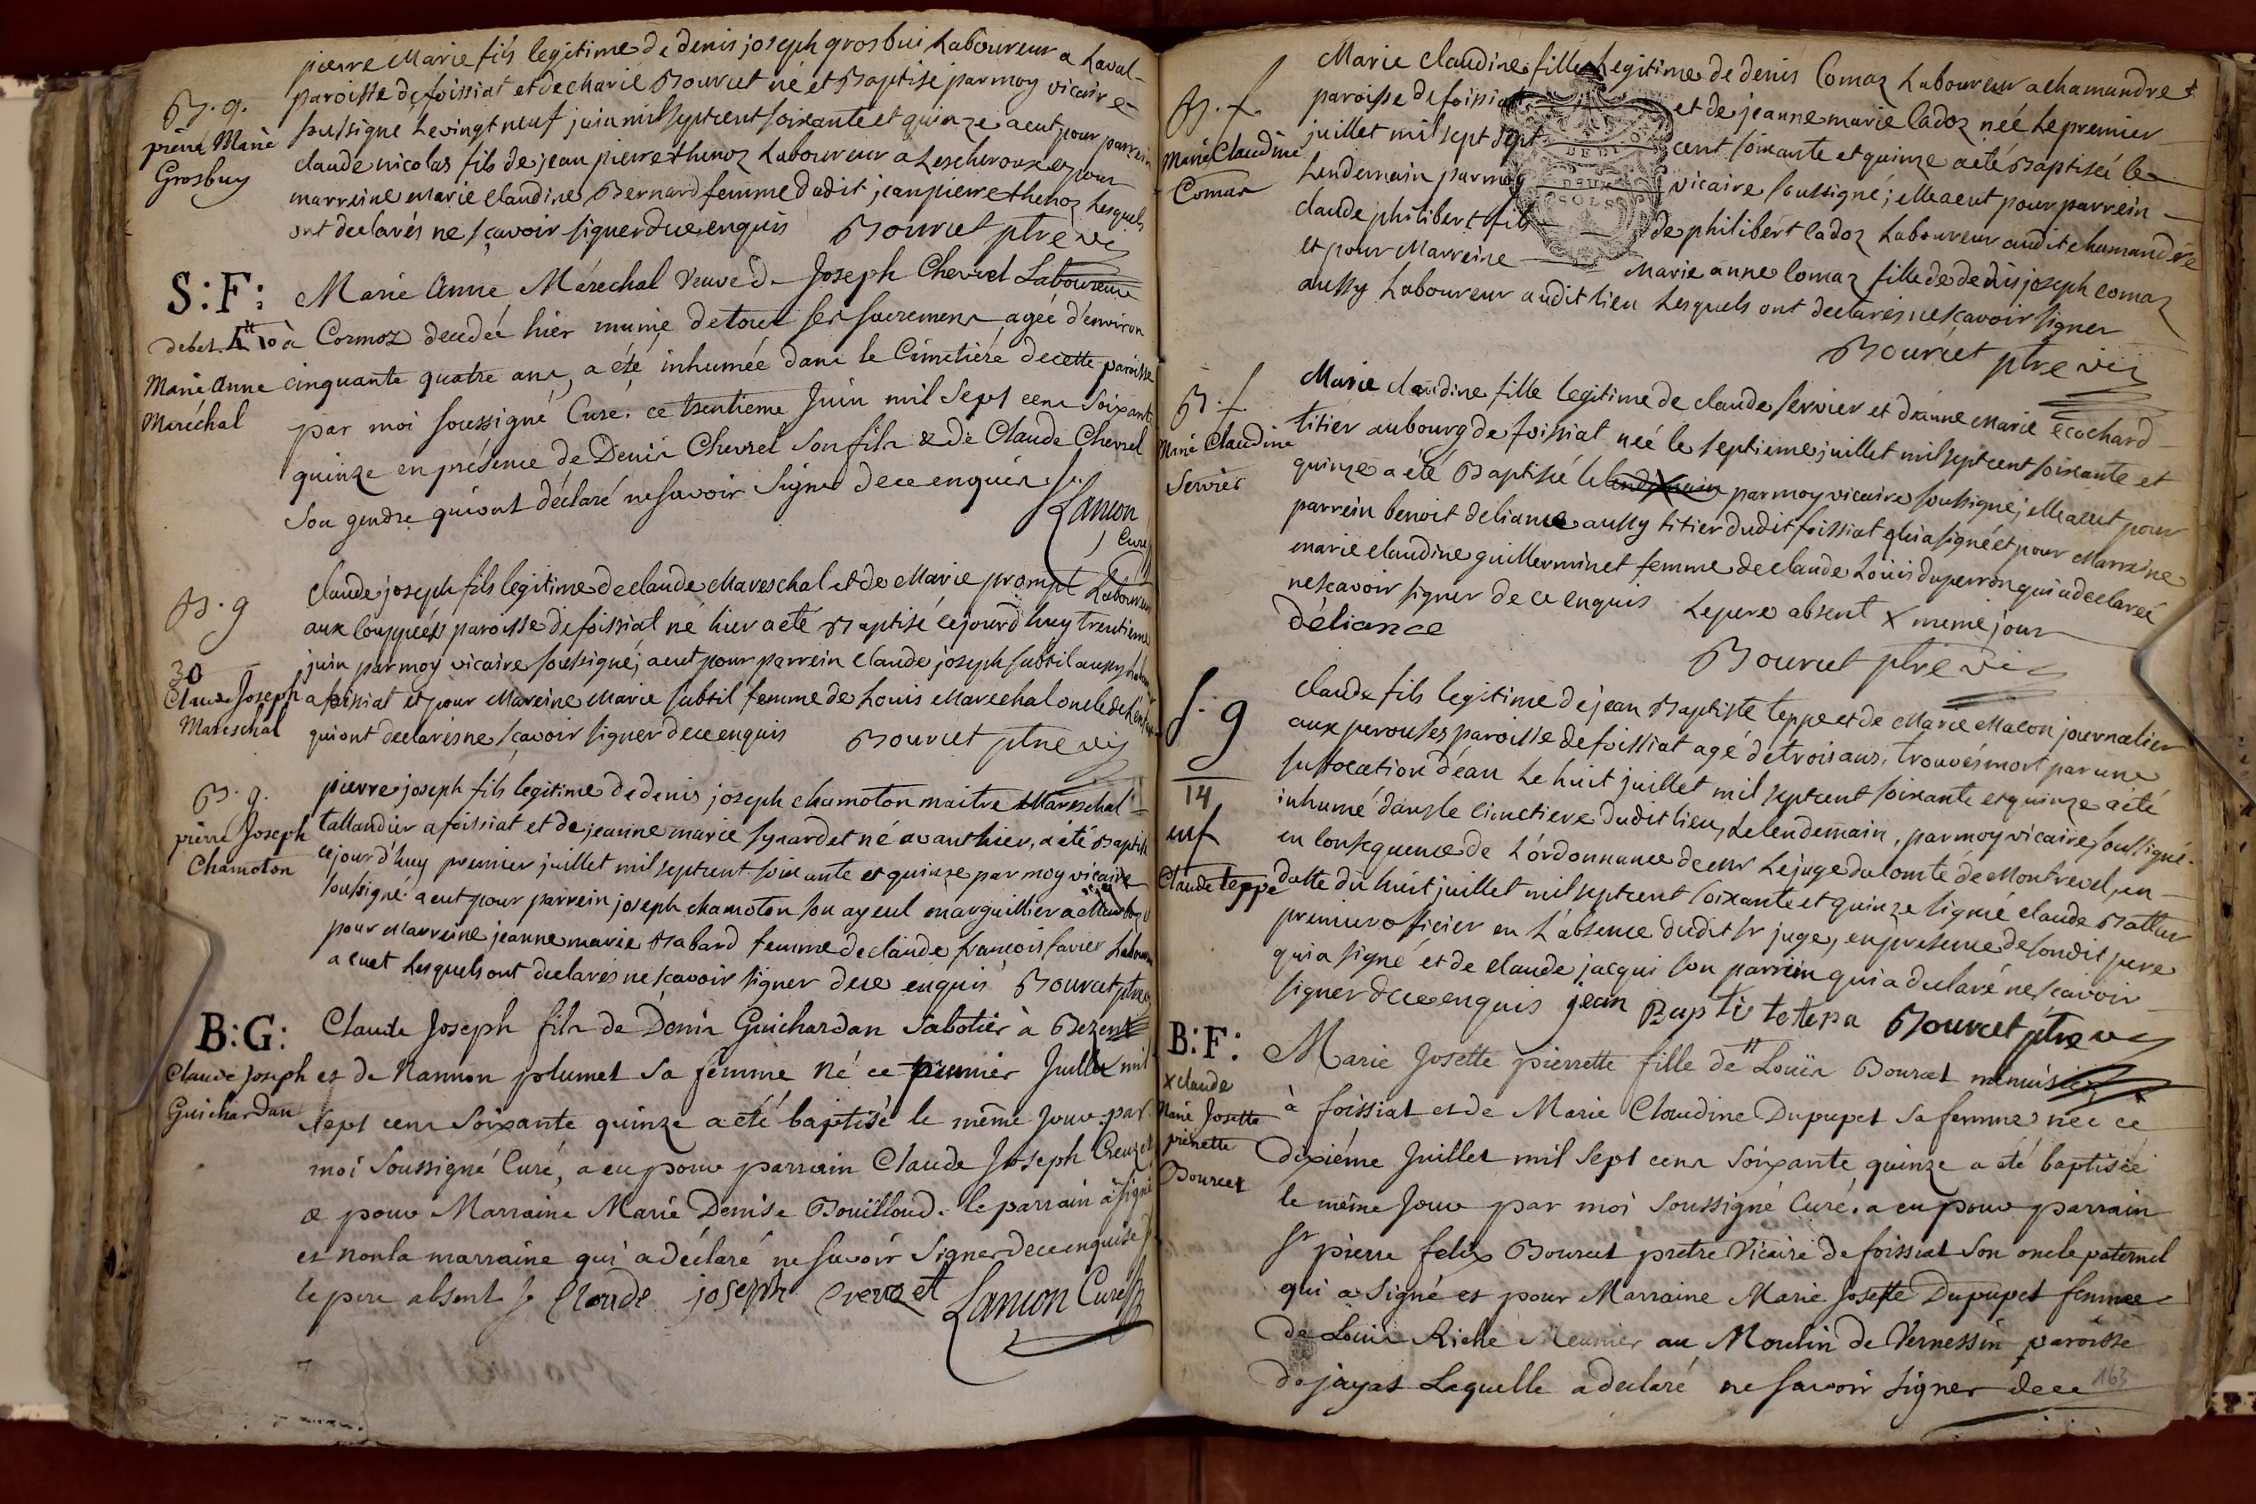 pierre Marie fils legitime de denis joseph grosbui Laboureur a Laval
B. g.
pierre Marie
Grosbuy
paroisse de foissiat et de charie Bourcet né et Baptisé par moy vicaire
soussigné le vingt neuf juin mil sept cent soixante et quinze a eut pour parrein
claude nicolas fils de jean pierre thenoz Laboureur a Lescheroux et pour
marreine marie claudine Bernard femme dudit jean pierre thenoz Lesquels
ont declarés ne sçavoir signer de ce enquis Bourcet ptre vic
S:F:
debet
Marie Anne
Maréchal
Marie Anne Maréchal veuve de Joseph Chevrel Laboureur
à Cormoz decedée hier munie de tout ses sacremens agée d'environ
cinquante quatre ans, a été inhumée dans le Cimetière de cette paroisse
par moi soussigné Curé. ce trentieme Juin mil sept cens soixante
quinze en présence de Denis Chevrel son fils & de Claude Chevrel
son gendre qui ont déclaré ne savoir signer de ce enquis
Lanson
Curé
B. g
30
Claude Joseph
Mareschal
claude joseph fils legitime de claude Mareschal et de Marie prompt Laboureur
aux Couppées paroisse de foissiat né hier a été Baptisé ce jourd'huy trentieme
juin par moy vicaire soussigné; a eut pour parrein claude joseph subtil aussy
a foissiat et pour Mareine Marie subtil femme de Louis Marechal oncle de
qui ont declarés ne sçavoir signer de ce enquis Bourcet ptre vic
B. g.
pierre Joseph
Chamoton
pierre joseph fils legitime de denis joseph chamoton maitre Mareschal
tallandier a foissiat et de jeanne marie synardet né avant hier, a été Baptisé
ce jourd'huy premier juillet mil sept cent soixante et quinze par moy vicaire
soussigné a eut pour parrein joseph chamoton son ayeul marguillier a
pour marreine jeanne marie Babard femme de claude françois favier
a cuet Lesquels ont declarés ne scavoir signer de ce enquis Bourcet ptre
B:G:
Claude Joseph
Guichardan
Claude Joseph fils de Denis Guichardan Sabotier à Bezentet
et de Nannon plumet sa femme né ce premier Juillet mil
sept cens soixante quinze a été baptisé le même jour par
moi soussigné Curé, a eu pour parrain Claude Joseph Creuzet
& pour Marraine Marie Denise Bouilloud. le parrain a signé
et non la marraine qui a déclaré ne savoir signer de ce enquise
le pere absent Claude joseph Creuzet Lanson Curé
B. f.
Marie Claudine
Comas
Marie Claudine fille Legitime de denis Comaz Laboureur a chamandre
paroisse de foissiat et de jeanne marie Cadoz née le premier
juillet mil sept sept cent soixante et quinze a été Baptisée le
Lendemain par moy vicaire soussigné; elle a eut pour parrein
claude philibert fils de philibert Cadoz Laboureur audit chamandre
et pour Marreine Marie anne Comaz fille de denis joseph Comaz
aussy Laboureur audit lieu Lesquels ont declarés ne scavoir signer
DEUX
SOLS
Bourcet ptre vic
B. f.
Marie Claudine
Servier
Marie claudine fille legitime de claude servier et deanne Marie ecochard
titier au bourg de foissiat née le septieme juillet mil sept cent soixante et
quinze a été Baptisée le lendemain par moy vicaire soussigné; elle a eut pour
parrein benoit deliance aussy titier dudit foissiat qui a signé et pour Marreine
marie claudine guillerminet femme de claude Louis duperron qui a declaré
ne scavoir signer de ce enquis Le pere absent x meme jour
déliance
Bourcet ptre vic
S. g
14
enf
Claude teppe
Claude fils legitime de jean Baptiste teppe et de Marie Macon journalier
aux perouses paroisse de foissiat agé de trois ans, trouvés mort par une
suffocation d'eau Le huit juillet mil sept cent soixante et quinze a été
inhumé dans le cimetiere dudit lieu Le lendemain, par moy vicaire soussigné
en consequence de L'ordonnance de mr Le juge du comté de Montrevel, en
datte du huit juillet mil sept cent soixante et quinze signé claude
premier officier en L'absence dudit sr juge, en presence de sondit pere
qui a signé et de claude jacqui son parrein qui a declaré ne scavoir
signer de ce enquis jean Baptis te tepa Bourcet ptre vic
B:F:
x claude
Marie Josette
pierrette
Bourcet
Marie Josette pierrette fille de Louis Bourcet menuisier
à foissiat et de Marie Claudine Dupupet sa femme née ce
dixiéme Juillet mil sept cens soixante quinze a été baptisée
le même jour par moi soussigné Curé. a eu pour parrain
Sr pierre felix Bourcet prêtre Vicaire de foissiat son oncle paternel
qui a signé et pour Marraine Marie Josette Dupupet femme
de Louis Riche Meunier au Moulin de Vernessin paroisse
de jayat Laquelle a declaré ne savoir signer de ce
163